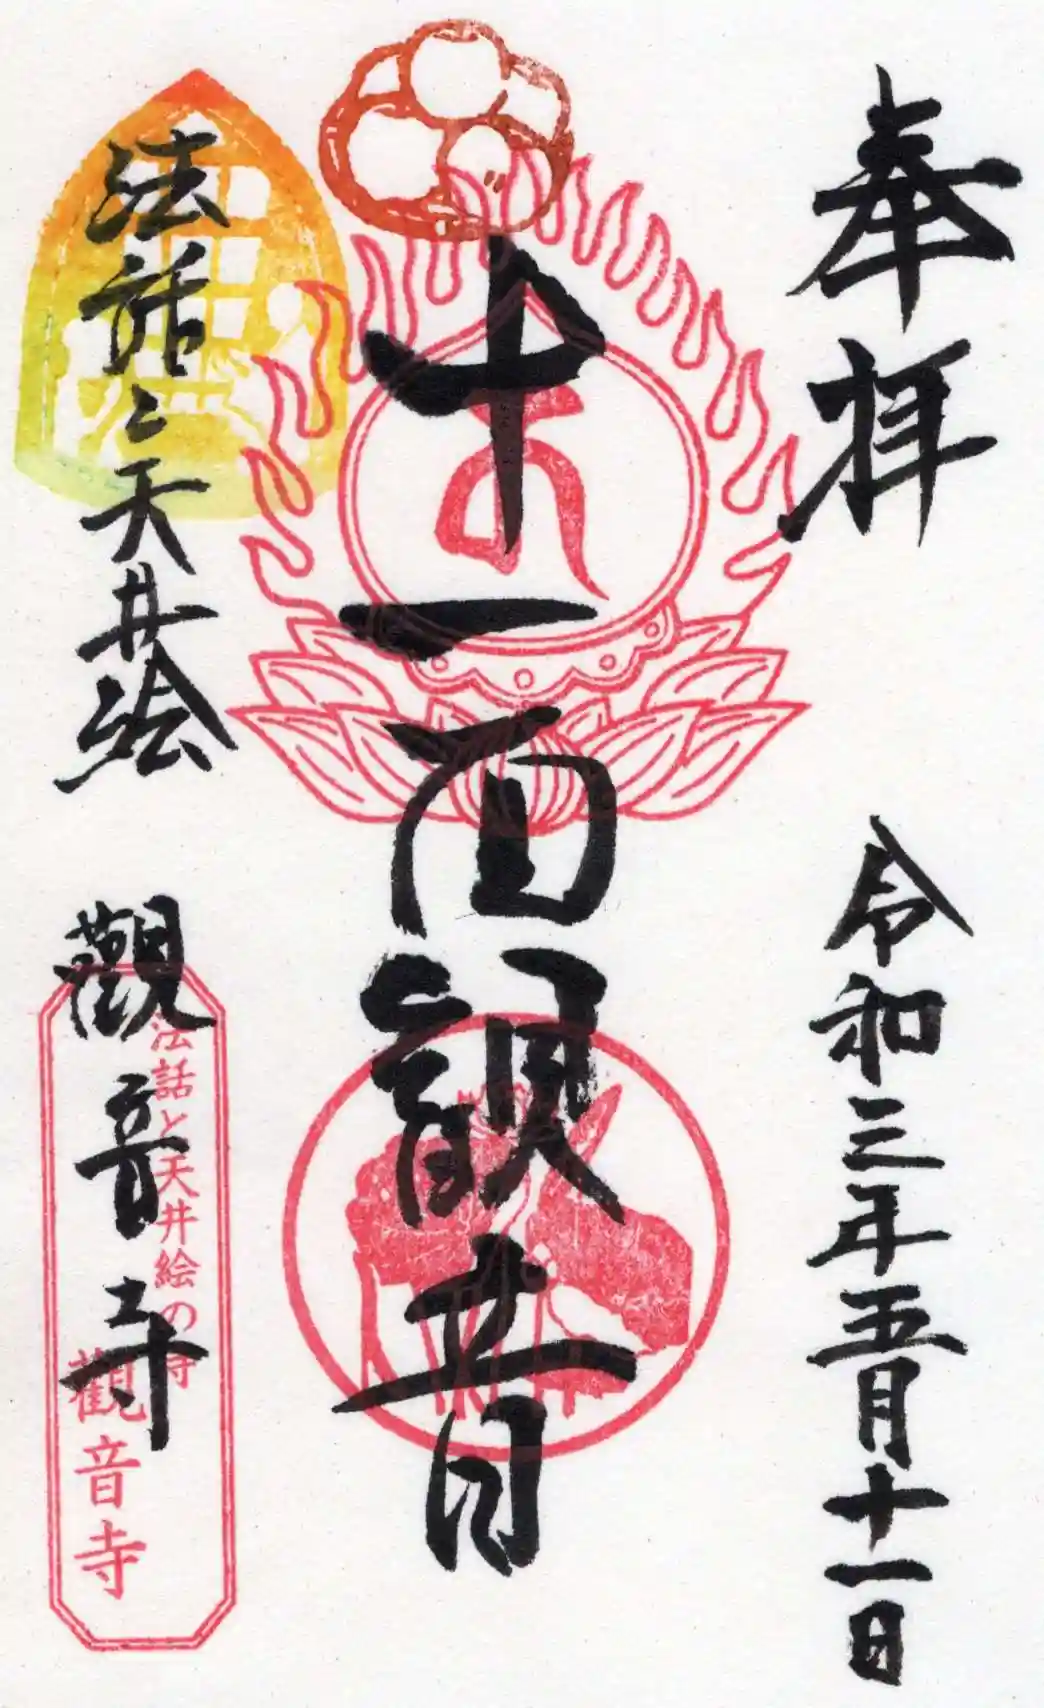 奉拝
令和三年五月十一日
十一面観音
法話と天井絵
觀音寺
法話と天井絵の寺
觀音寺